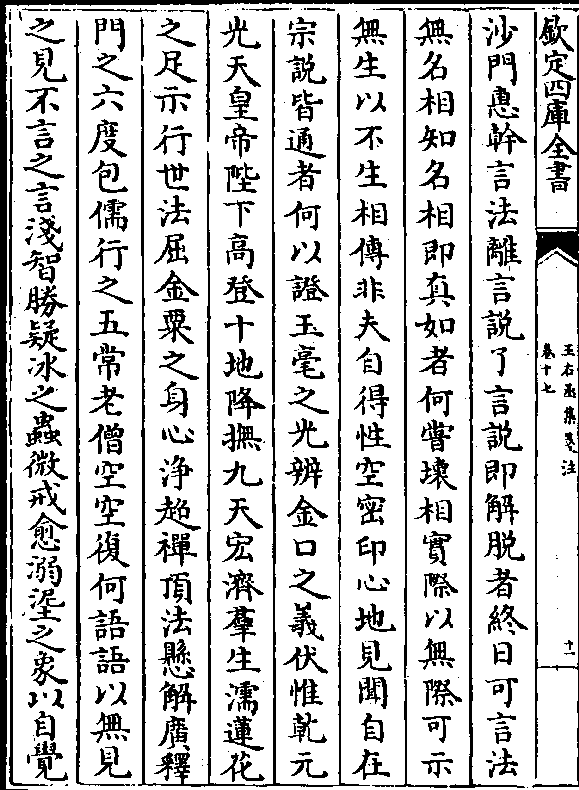 欽定四庫全書
王右丞集箋注
卷十七
十一
沙門惠幹言法離言說了言說即解脫者終日可言法
無名相知名相即真如者何嘗壞相實際以無際可示
無生以不生相傳非夫自得性空密印心地見聞自在
宗說皆通者何以證玉毫之光辨金口之義伏惟乾元
光天皇帝陛下高登十地降撫九天宏濟羣生濡蓮花
之足示行世法屈金粟之身心淨超禪頂法懸解廣釋
門之六度包儒行之五常老僧空空復何語語以無見
之見不言之言淺智勝疑冰之蟲微戒愈溺埿之象以自覺